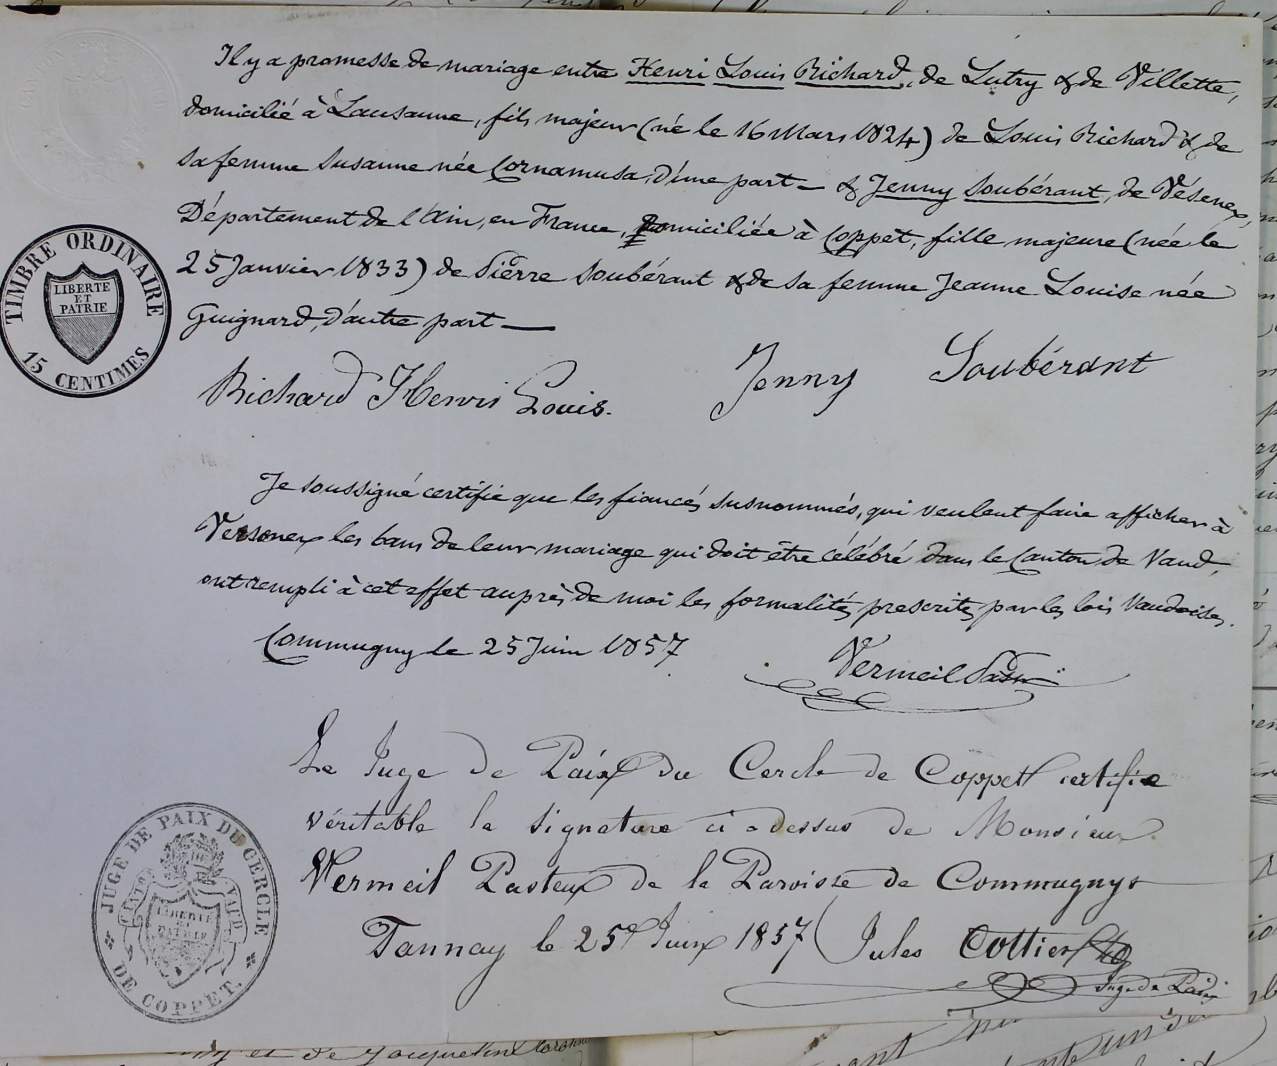 Il y a promesse de mariage entre Henri Louis Richard, de Lutry & de Villette,
domicilié à Lausanne, fils majeur (né le 16 Mars 1824) de Louis Richard & de
sa femme Susanne née Cornamusa, d'une part — & Jenny Soubérant, de Vésenex,
Département de l'Ain, en France, Domiciliée à Coppet, fille majeure (née le
25 Janvier 1833) de Pierre Soubérant & de sa femme Jeanne Louise née
Guignard, d'autre part —
TIMBRE ORDINAIRE
LIBERTE
ET
PATRIE
15 CENTIMES
Richard Henri Louis.
Jenny Soubérant
Je soussigné certifie que les fiancés susnommés, qui veulent faire afficher à
Versonex les bans de leur mariage qui doit être célébré dans le Canton de Vaud,
ont rempli à cet effet auprès de moi les formalités prescrites par les lois Vaudoises.
Commugny le 25 Juin 1857
Vermeil Pastr
Le Juge de Paix du Cercle de Coppet certifie
véritable la signature ci-dessus de Monsieur
Vermeil Pasteur de la Paroisse de Commugny
Tannay le 25e Juin 1857 Jules Cottier
Juge de Paix
JUGE DE PAIX DU CERCLE
CANTON DE VAUD
LIBERTE
ET
PATRIE
DE COPPET.